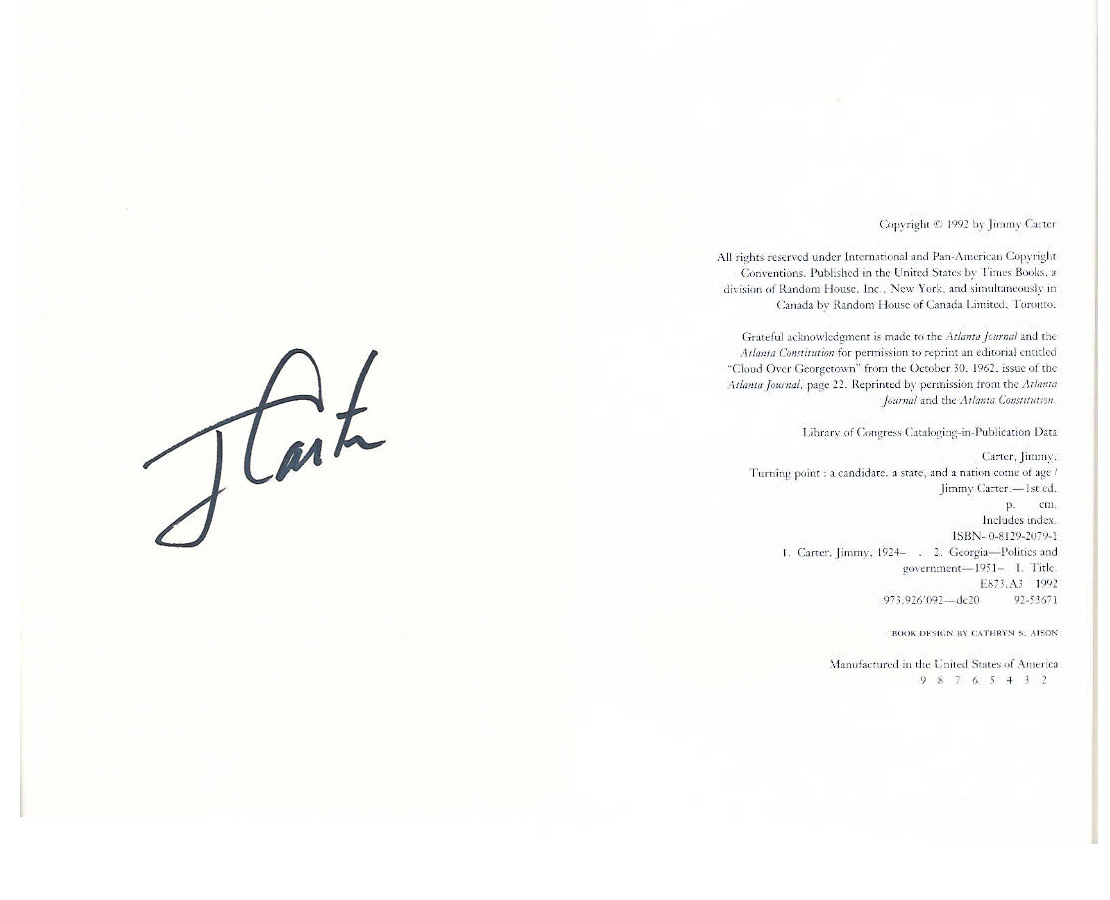 J Carter
Copyright © 1992 by Jimmy Carter
All rights reserved under International and Pan-American Copyright
Conventions. Published in the United States by Times Books, a
division of Random House, Inc., New York, and simultaneously in
Canada by Random House of Canada Limited, Toronto.
Grateful acknowledgment is made to the Atlanta Journal and the
Atlanta Constitution for permission to reprint an editorial entitled
"Cloud Over Georgetown" from the October 30, 1962, issue of the
Atlanta Journal, page 22. Reprinted by permission from the Atlanta
Journal and the Atlanta Constitution.
Library of Congress Cataloging-in-Publication Data
Carter, Jimmy.
Turning point : a candidate, a state, and a nation come of age /
Jimmy Carter.—1st ed.
p. cm.
Includes index.
ISBN- 0-8129-2079-1
1. Carter, Jimmy, 1924– . 2. Georgia—Politics and
government—1951– I. Title.
E873.A3 1992
973.926'092—dc20 92-53671
BOOK DESIGN BY CATHRYN S. AISON
Manufactured in the United States of America
9 8 7 6 5 4 3 2